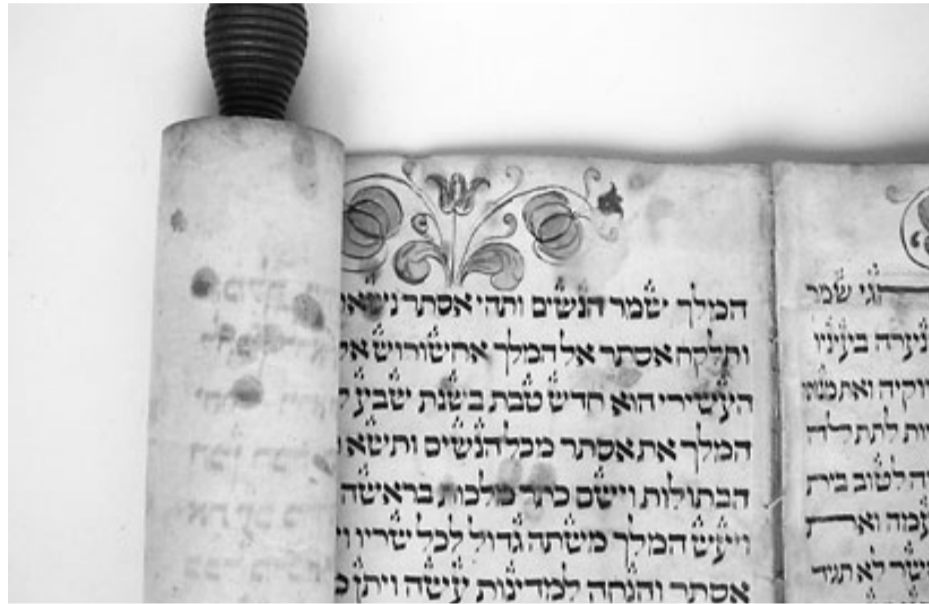 הגי שמר
בעיניו
ואת
לתת לה
לטוב בית
עמה ואת
לא תגיד
המלך שמר הנשים ותהי אסתר
ותלקח אסתר אל המלך אחשורוש אל
העשירי הוא חדש טבת בשנת שבע
המלך את אסתר מכל הנשים ותשא
הבתולות וישם כתר מלכות בראשה
ויעש המלך משתה גדול לכל שריו
אסתר והנחה למדינות עשה ויתן